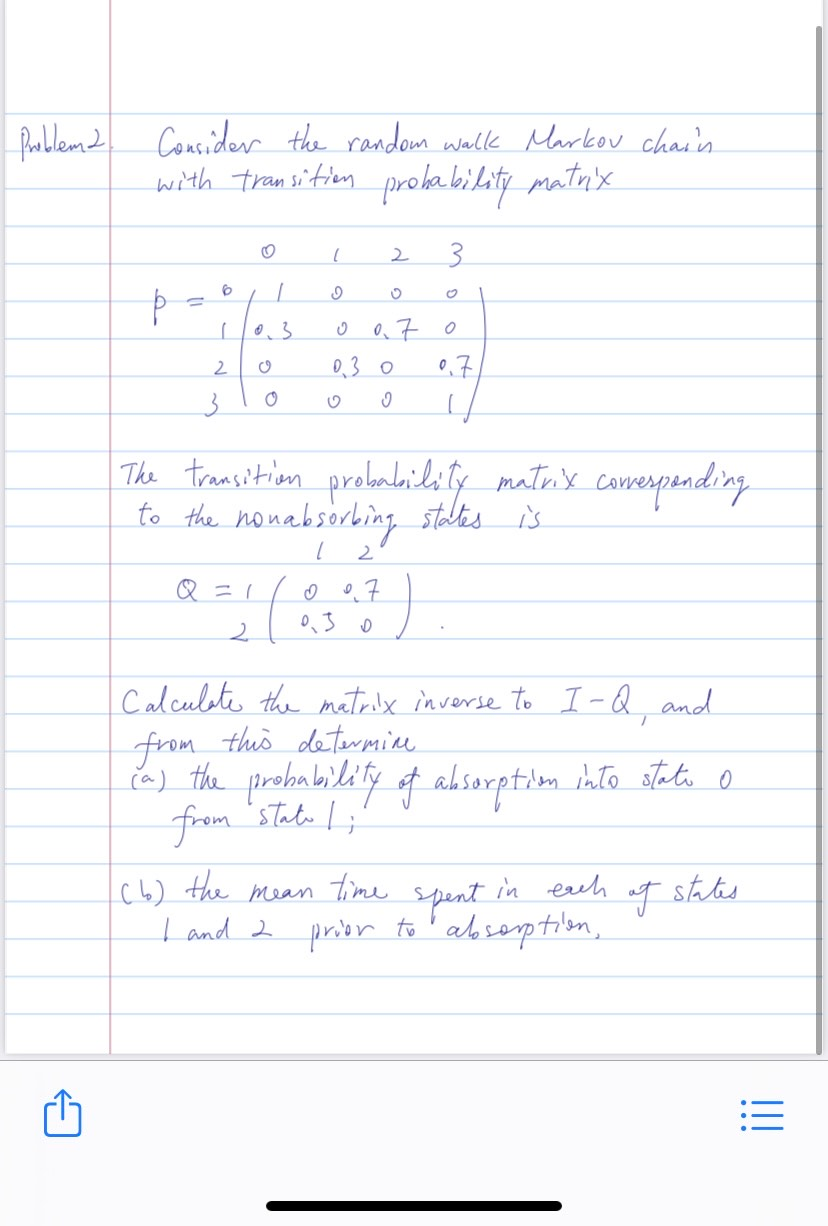 Problem 2. Consider the random walk Markov chain
with transition probability matrix
0 1 2 3
P = 0 1 0 0 0
1 0.3 0 0.7 0
2 0 0.3 0 0.7
3 0 0 0 1
The transition probability matrix corresponding
to the nonabsorbing states is
1 2
Q = 1 0 0.7
2 0.3 0 .
Calculate the matrix inverse to I - Q, and
from this determine
(a) the probability of absorption into state 0
from state 1;
(b) the mean time spent in each of states
1 and 2 prior to absorption.